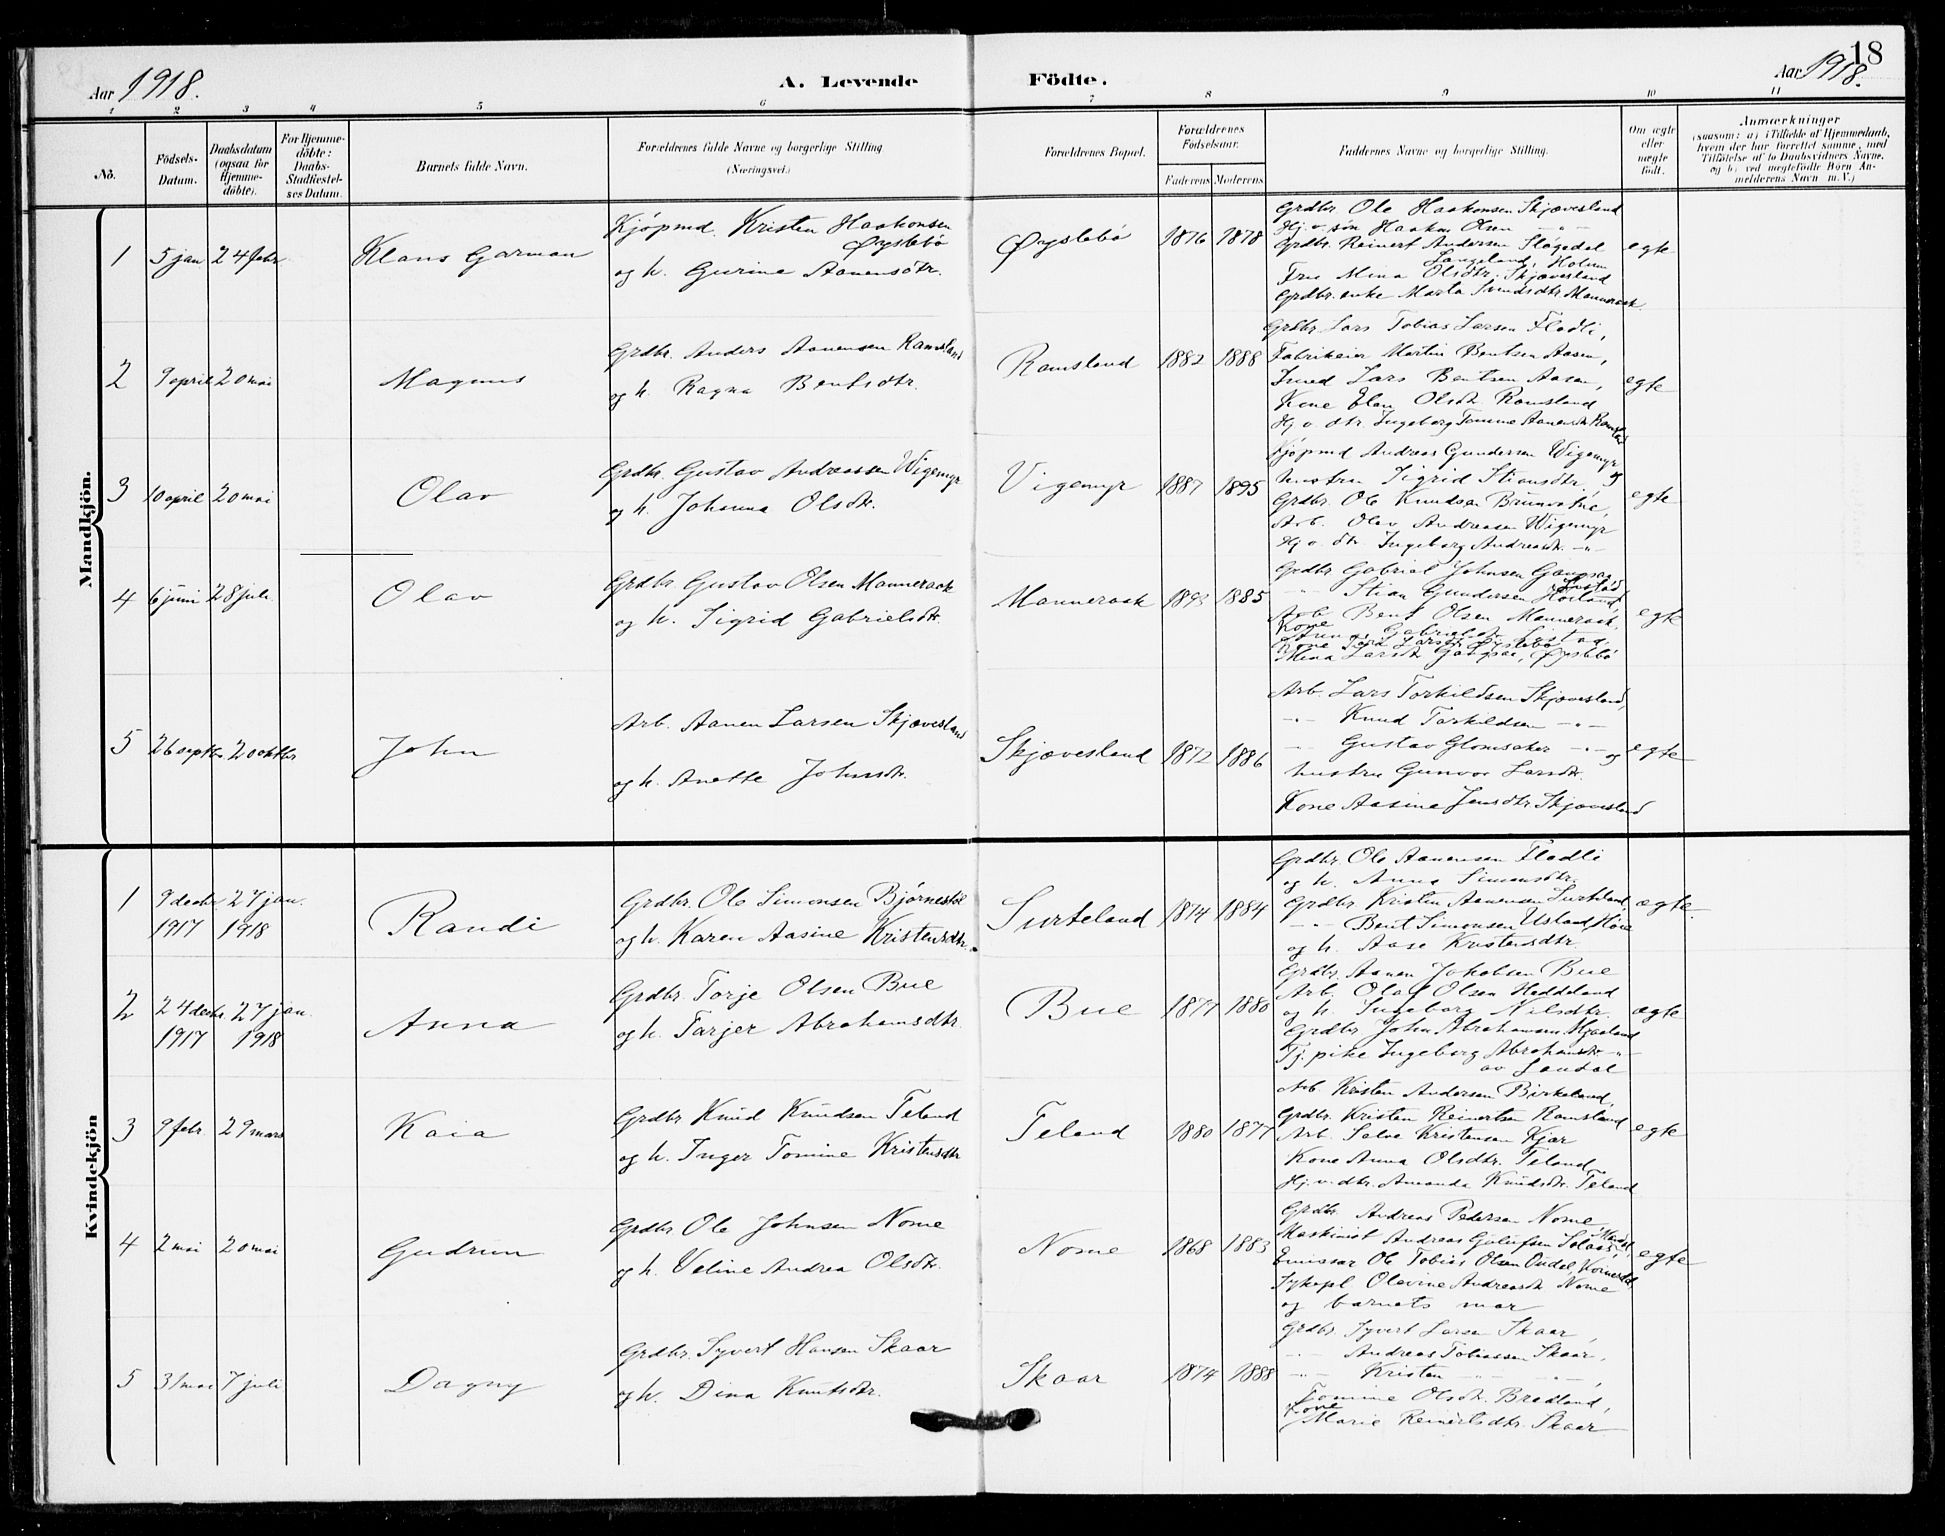 18
Aar 1918.
A. Levende Födte.
Aar 1918.
1 2 3 4 5 6 7 8 9 10 11
No.
Födsels-Datum.
Daabsdatum (ogsaa for Hjemme-döbte).
For Hjemme-döbte: Daabs-Stadfæstel-ses Datum.
Barnets fulde Navn.
Forældrenes fulde Navne og borgerlige Stilling (Næringsvei.)
Forældrenes Bopæl.
Forældrenes Födselsaar.
Faderens Moderens
Faddernes Navne og borgerlige Stilling.
Om ægte eller uægte födt.
Anmærkninger
(saasom: a) i Tilfælde af Hjemmedaab, hvem der har forrettet samme, med Tilföielse af to Daabsvidners Navne, og b) ved uægtefödte Börn An-melderens Navn m. V.)
Mandkjön.
1 5 jan 24 febr. Klaus Garman
Kjøpmd. Kristen Haakonsen Øyslebø
og h. Gurine Aanensdtr.
Øyslebø 1876 1878
Grdbr. Ole Haakonsen Skjævesland
Hj. v. søn Haakon Olsen -"-
Grdbr. Reinert Andersen Støgedal
Langeland, Holum
Fru Mina Olsdtr. Skjævesland
Grdbr. enke Marta Svendsdtr Manneraak.
egte
2 9 april 20 mai Magnus
Grdbr. Anders Aanensen Ramsland
og h. Ragna Bentsdtr.
Ramsland 1882 1888
Grdbr. Lars Tobias Larsen Flodli,
Fabrikeier Martin Bentsen Aasen,
Smed Lars Bentsen Aasen,
Kone Elen Olsdtr. Ramsland
Hj. v. dtr. Ingeborg Tomine Aanensdtr Ramsland
egte
3 10 april 20 mai Olav
Grdbr. Gustav Andreassen Vigemyr
og h. Johanna Olsdtr.
Vigemyr 1887 1895
Kjøpmd Andreas Gundersen Wigemyr og
hustru Sigrid Stiansdtr,
Grdbr. Ole Knudsen
Arb. Olav Andreasen Wigemyr
Hj. v. dtr. Ingeborg Andreasdtr. -"-
egte
4 6 juni 28 juli. Olav
Grdbr. Gustav Olsen Manneraak
og h. Sigrid Gabrielsdtr.
Manneraak 1893 1885
Grdbr Gabriel Johnsen
-"- Stian Gundersen
Arb. Bent Olsen Manneraak.
Kone
Øyslebø
egte
5 26 septbr. 20 oktbr John
Arb. Aanen Larsen Skjævesland
og h. Anette Johnsdtr.
Skjævesland 1872 1886
Arb. Lars Torkildsen Skjævesland,
-"- Knud Torkildsen -"-
-"- Gustav Glomsaker -"- og
hustru Gunvor Larsdtr.
Kone Aasine Jensdtr Skjævesland
egte
Kvindekjön
1 9 decbr. 1917 27 jan. 1918 Randi
Grdbr. Ole Simonsen Bjørnestøl
og h. Karen Aasine Kristensdtr.
Surteland 1874 1884
Grdbr. Ole Aanensen Flodli
og h. Anna Simonsdtr.
Grdbr Kristen Aanensen Surteland,
-"- Bent Simonsen Usland,
og h. Aase Kristensdtr
ægte
2 24 decbr. 1917 27 jan. 1918 Anna
Grdbr. Torje Olsen Bue
og h. Tarjer Abrahamsdtr.
Bue 1877 1880
Grdbr. Aanen Jakobsen Bue
Arb. Olaf Olsen Heddeland
og h. Ingeborg Nilsdtr.
Grdbr John Abrahamsen
Tj. pike Ingeborg Abrahamsdtr. -"-
av Laudal
ægte
3 9 febr. 29 mars Kaia
Grdbr Knud Knudsen Teland
og h. Inger Tomine Kristensdtr
Teland 1880 1877
Arb. Kristen Andersen Birkeland,
Grdbr. Kristen Reinertsen Ramsland
Arb. Salve Kristensen Kjær
Kone Anna Olsdtr. Teland
Hj. v. dtr. Amanda Knudsdtr. Teland
egte
4 2 mai 20 mai Gudrun
Grdbr Ole Johnsen Nome
og h. Veline Andrea Olsdtr.
Nome 1868 1883
Grdbr. Andreas Pedersen Nome,
Maskinist Andreas
Emissær Ole Tobias Olsen
Sykepl. Olevine Andreasdtr Nome
og barnets mor
egte
5 31 mai 7 juli Dagny
Grdbr. Syvert Hansen Skaar
og h. Dina Knutsdtr.
Skaar 1874 1888
Grdbr Syvert Larsen Skaar,
-"- Andreas Tobiassen Skaar,
-"- Kristen -"- -"-,
Tomine Olsdtr. Bredland,
Kone
Marie Reinertsdtr. Skaar